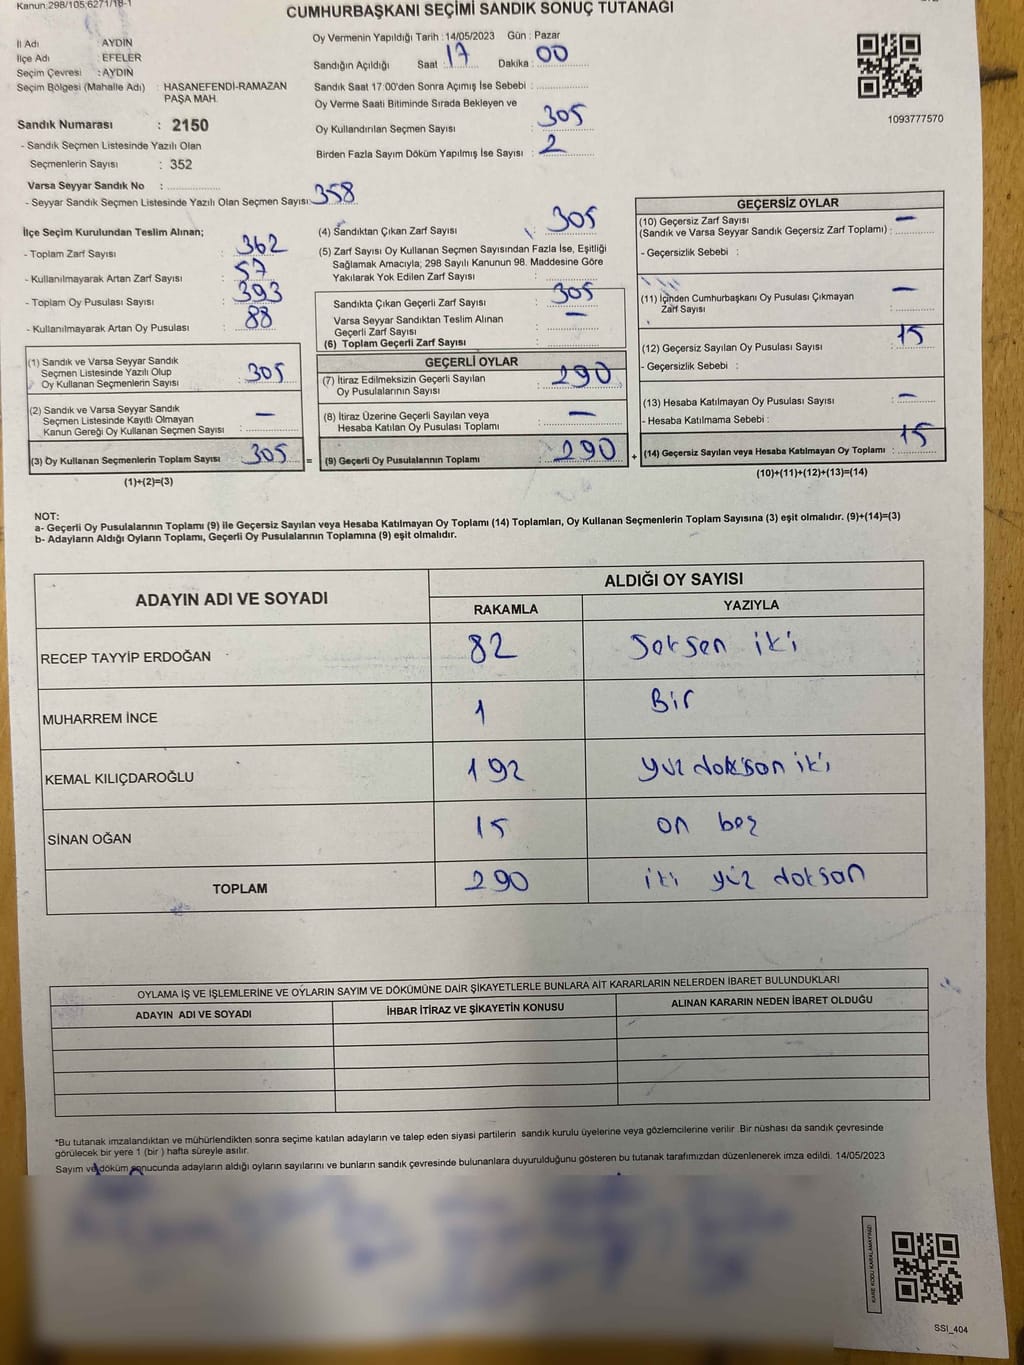 Kanun:298/105,6271/18-1
CUMHURBAŞKANI SEÇİMİ SANDIK SONUÇ TUTANAĞI
İl Adı : AYDIN
İlçe Adı : EFELER
Seçim Çevresi : AYDIN
Seçim Bölgesi (Mahalle Adı) : HASANEFENDİ-RAMAZAN PAŞA MAH.
Sandık Numarası : 2150
- Sandık Seçmen Listesinde Yazılı Olan
Seçmenlerin Sayısı : 352
Varsa Seyyar Sandık No :
- Seyyar Sandık Seçmen Listesinde Yazılı Olan Seçmen Sayısı: 358
Oy Vermenin Yapıldığı Tarih : 14/05/2023 Gün : Pazar
Sandığın Açıldığı Saat : 17 Dakika : 00
Sandık Saat 17:00'den Sonra Açımış İse Sebebi :
Oy Verme Saati Bitiminde Sırada Bekleyen ve
Oy Kullandırılan Seçmen Sayısı : 305
Birden Fazla Sayım Döküm Yapılmış İse Sayısı : 2
1093777570
İlçe Seçim Kurulundan Teslim Alınan;
- Toplam Zarf Sayısı : 362
- Kullanılmayarak Artan Zarf Sayısı : 57
- Toplam Oy Pusulası Sayısı : 393
- Kullanılmayarak Artan Oy Pusulası : 88
(1) Sandık ve Varsa Seyyar Sandık
Seçmen Listesinde Yazılı Olup
Oy Kullanan Seçmenlerin Sayısı : 305
(2) Sandık ve Varsa Seyyar Sandık
Seçmen Listesinde Kayıtlı Olmayan
Kanun Gereği Oy Kullanan Seçmen Sayısı : —
(3) Oy Kullanan Seçmenlerin Toplam Sayısı : 305 =
(1)+(2)=(3)
(4) Sandıktan Çıkan Zarf Sayısı : 305
(5) Zarf Sayısı Oy Kullanan Seçmen Sayısından Fazla İse, Eşitliği
Sağlamak Amacıyla; 298 Sayılı Kanunun 98. Maddesine Göre
Yakılarak Yok Edilen Zarf Sayısı :
Sandıkta Çıkan Geçerli Zarf Sayısı : 305
Varsa Seyyar Sandıktan Teslim Alınan
Geçerli Zarf Sayısı : —
(6) Toplam Geçerli Zarf Sayısı :
GEÇERLİ OYLAR
(7) İtiraz Edilmeksizin Geçerli Sayılan
Oy Pusulalarının Sayısı : 290
(8) İtiraz Üzerine Geçerli Sayılan veya
Hesaba Katılan Oy Pusulası Toplamı : —
(9) Geçerli Oy Pusulalarının Toplamı : 290 +
GEÇERSİZ OYLAR
(10) Geçersiz Zarf Sayısı —
(Sandık ve Varsa Seyyar Sandık Geçersiz Zarf Toplamı) :
- Geçersizlik Sebebi :
(11) İçinden Cumhurbaşkanı Oy Pusulası Çıkmayan —
Zarf Sayısı :
(12) Geçersiz Sayılan Oy Pusulası Sayısı : 15
- Geçersizlik Sebebi :
(13) Hesaba Katılmayan Oy Pusulası Sayısı : —
- Hesaba Katılmama Sebebi :
(14) Geçersiz Sayılan veya Hesaba Katılmayan Oy Toplamı : 15
(10)+(11)+(12)+(13)=(14)
NOT:
a- Geçerli Oy Pusulalarının Toplamı (9) ile Geçersiz Sayılan veya Hesaba Katılmayan Oy Toplamı (14) Toplamları, Oy Kullanan Seçmenlerin Toplam Sayısına (3) eşit olmalıdır. (9)+(14)=(3)
b- Adayların Aldığı Oyların Toplamı, Geçerli Oy Pusulalarının Toplamına (9) eşit olmalıdır.
ADAYIN ADI VE SOYADI ALDIĞI OY SAYISI
RAKAMLA YAZIYLA
RECEP TAYYİP ERDOĞAN 82 Seksen iki
MUHARREM İNCE 1 Bir
KEMAL KILIÇDAROĞLU 192 yüz doksan iki
SİNAN OĞAN 15 on beş
TOPLAM 290 iki yüz doksan
OYLAMA İŞ VE İŞLEMLERİNE VE OYLARIN SAYIM VE DÖKÜMÜNE DAİR ŞİKAYETLERLE BUNLARA AİT KARARLARIN NELERDEN İBARET BULUNDUKLARI
ADAYIN ADI VE SOYADI İHBAR İTİRAZ VE ŞİKAYETİN KONUSU ALINAN KARARIN NEDEN İBARET OLDUĞU
*Bu tutanak imzalandıktan ve mühürlendikten sonra seçime katılan adayların ve talep eden siyasi partilerin sandık kurulu üyelerine veya gözlemcilerine verilir .Bir nüshası da sandık çevresinde
görülecek bir yere 1 (bir ) hafta süreyle asılır.
Sayım ve döküm sonucunda adayların aldığı oyların sayılarını ve bunların sandık çevresinde bulunanlara duyurulduğunu gösteren bu tutanak tarafımızdan düzenlenerek imza edildi. 14/05/2023
KARE KODU KARALAMAYINIZ!
SSİ_404